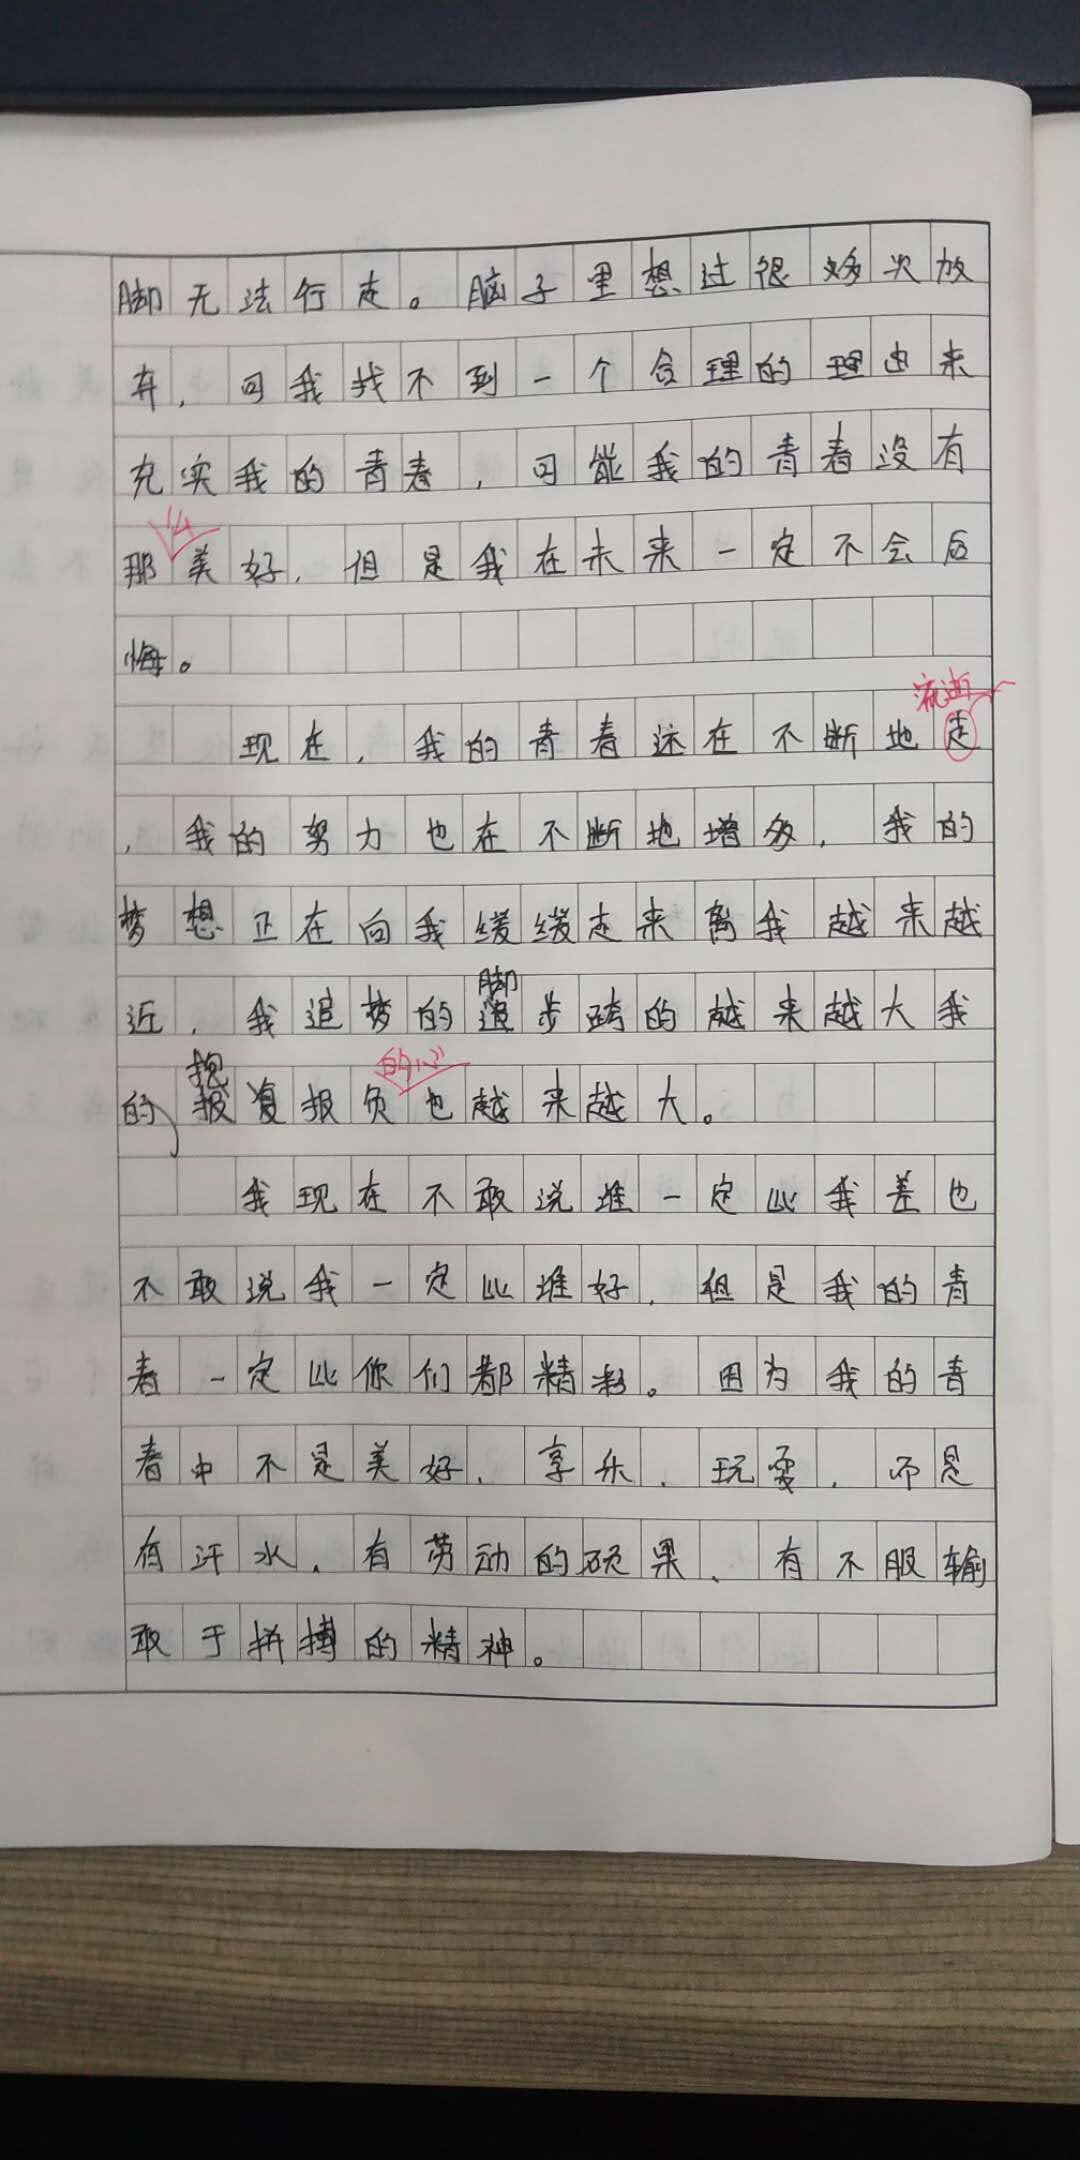 脚无法行走。脑子里想过很多次放
弃，可我找不到一个合理的理由来
充实我的青春，可能我的青春没有
么
那美好，但是我在未来一定不会后
悔。
流逝
现在，我的青春还在不断地走
，我的努力也在不断地增多，我的
梦想正在向我缓缓走来离我越来越
脚
近，我追梦的步跨的越来越大我
抱 的心
的报复报负也越来越大。
我现在不敢说谁一定比我差也
不敢说我一定比谁好，但是我的青
春一定比你们都精彩。因为我的青
春中不是美好、享乐、玩耍，而是
有汗水，有劳动的硕果、有不服输
敢于拼搏的精神。